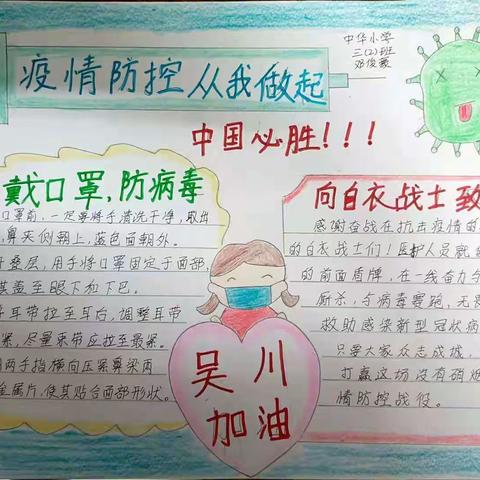 疫情防控从我做起
中华小学
三(2)班
邓俊薇
中国必胜!!!
戴口罩,防病毒
口罩前,一定要将手清洗干净,取出
鼻夹侧朝上,蓝色面朝外。
叠层,用手将口罩固定于面部,
其盖至眼下和下巴。
耳带拉至耳台,调整耳带
紧,尽量束带应拉至最紧。
两手指横向压紧鼻梁两
金属片,使其贴合面部形状。
向白衣战士致
感谢奋战在抗击疫情的
的白衣战士们!医护人员就
的前面盾牌,在一线奋力
厮杀,与病毒赛跑,无畏
救助感染新型冠状病
只要大家众志成城,
打赢这场没有硝烟
情防控战役。
吴川
加油